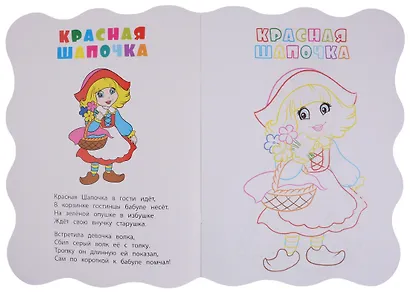 КРАСНАЯ
ШАПОЧКА
Красная Шапочка в гости идёт,
В корзинке гостинцы бабуле несёт.
На зелёной опушке в избушке
Ждёт свою внучку старушка.
Встретила девочка волка,
Сбил серый волк её с толку.
Тропку он длинную ей показал,
Сам по короткой к бабуле помчал!
КРАСНАЯ
ШАПОЧКА